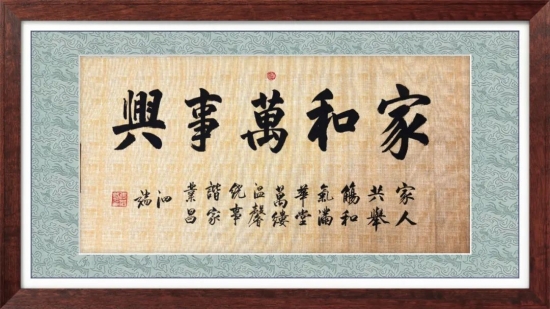 家和萬事興
家人
共舉
觴和
氣滿
華堂
萬縷
温馨
事
諧家
業昌
泗